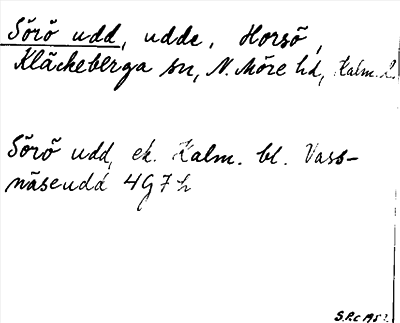 Sörö udd, udde, Horsö,
Kläckeberga sn, N. Möre hd, Kalm. l.
Sörö udd, ek. Kalm. bl. Vass-
näseudd 4G7h
S.P.C 195